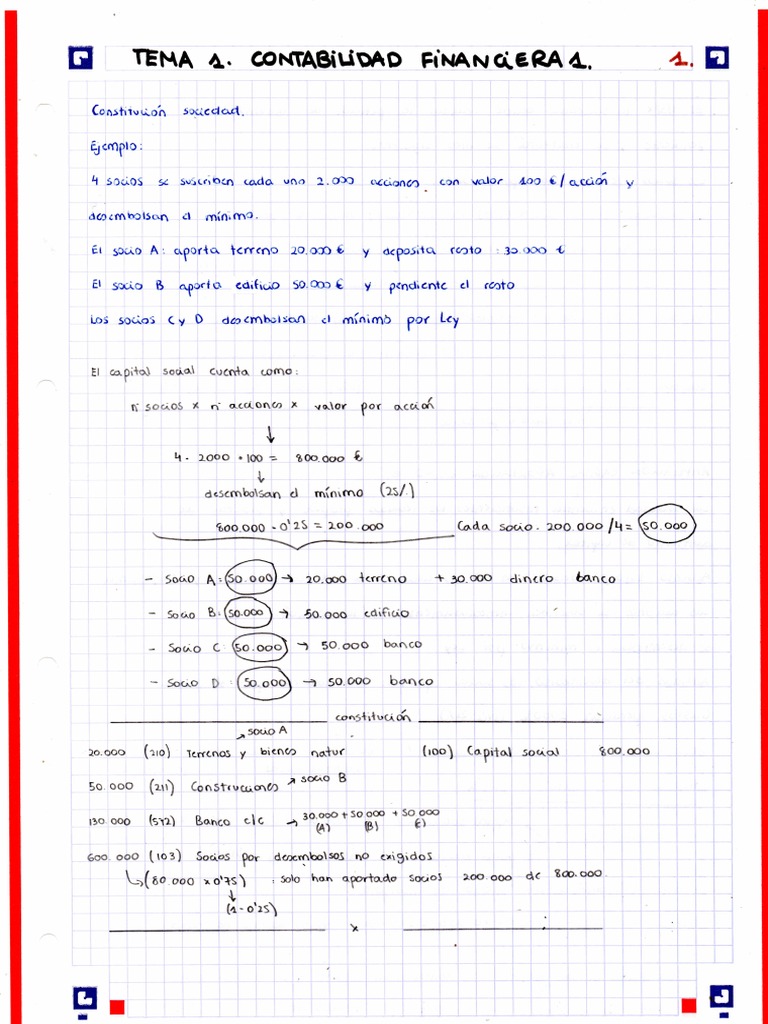 TEMA 1. CONTABILIDAD FINANCIERA 1. 1.
Constitución sociedad.
Ejemplo:
4 socios se suscriben cada uno 2.000 acciones con valor 100 €/acción y
desembolsan el mínimo.
El socio A: aporta terreno 20.000 € y deposita resto : 30.000 €
El socio B aporta edificio 50.000 € y pendiente el resto
Los socios C y D desembolsan el mínimo por Ley
El capital social cuenta como:
nº socios x nº acciones x valor por acción
↓
4 · 2000 · 100 = 800.000 €
↓
desembolsan el mínimo (25%)
800.000 · 0'25 = 200.000 Cada socio. 200.000 /4 = 50.000
- Socio A: 50.000 → 20.000 terreno + 30.000 dinero banco
- Socio B: 50.000 → 50.000 edificio
- Socio C: 50.000 → 50.000 banco
- Socio D: 50.000 → 50.000 banco
constitución
socio A
20.000 (210) Terrenos y bienes natur (100) Capital social 800.000
50.000 (211) Construcciones → socio B
130.000 (572) Banco c/c → 30.000 + 50.000 + 50.000
(A) (B)
600.000 (103) Socios por desembolsos no exigidos
(80.000 x 0'75) : solo han aportado socios 200.000 de 800.000
↓
(1 - 0'25)
x